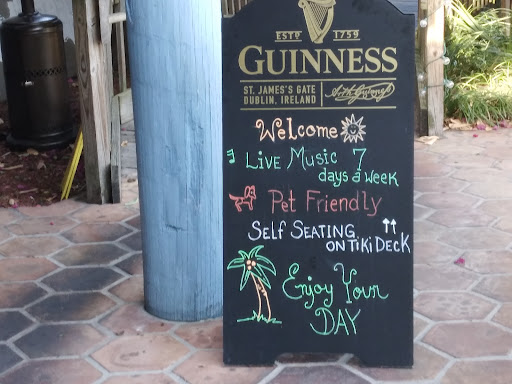 ESTD 1759
GUINNESS
ST. JAMES'S GATE
DUBLIN, IRELAND
Arth Guinness
Welcome
LIVE MUSIC 7
days a week
Pet Friendly
SELF SEATING
ON TIKI DECK
Enjoy Your
DAY